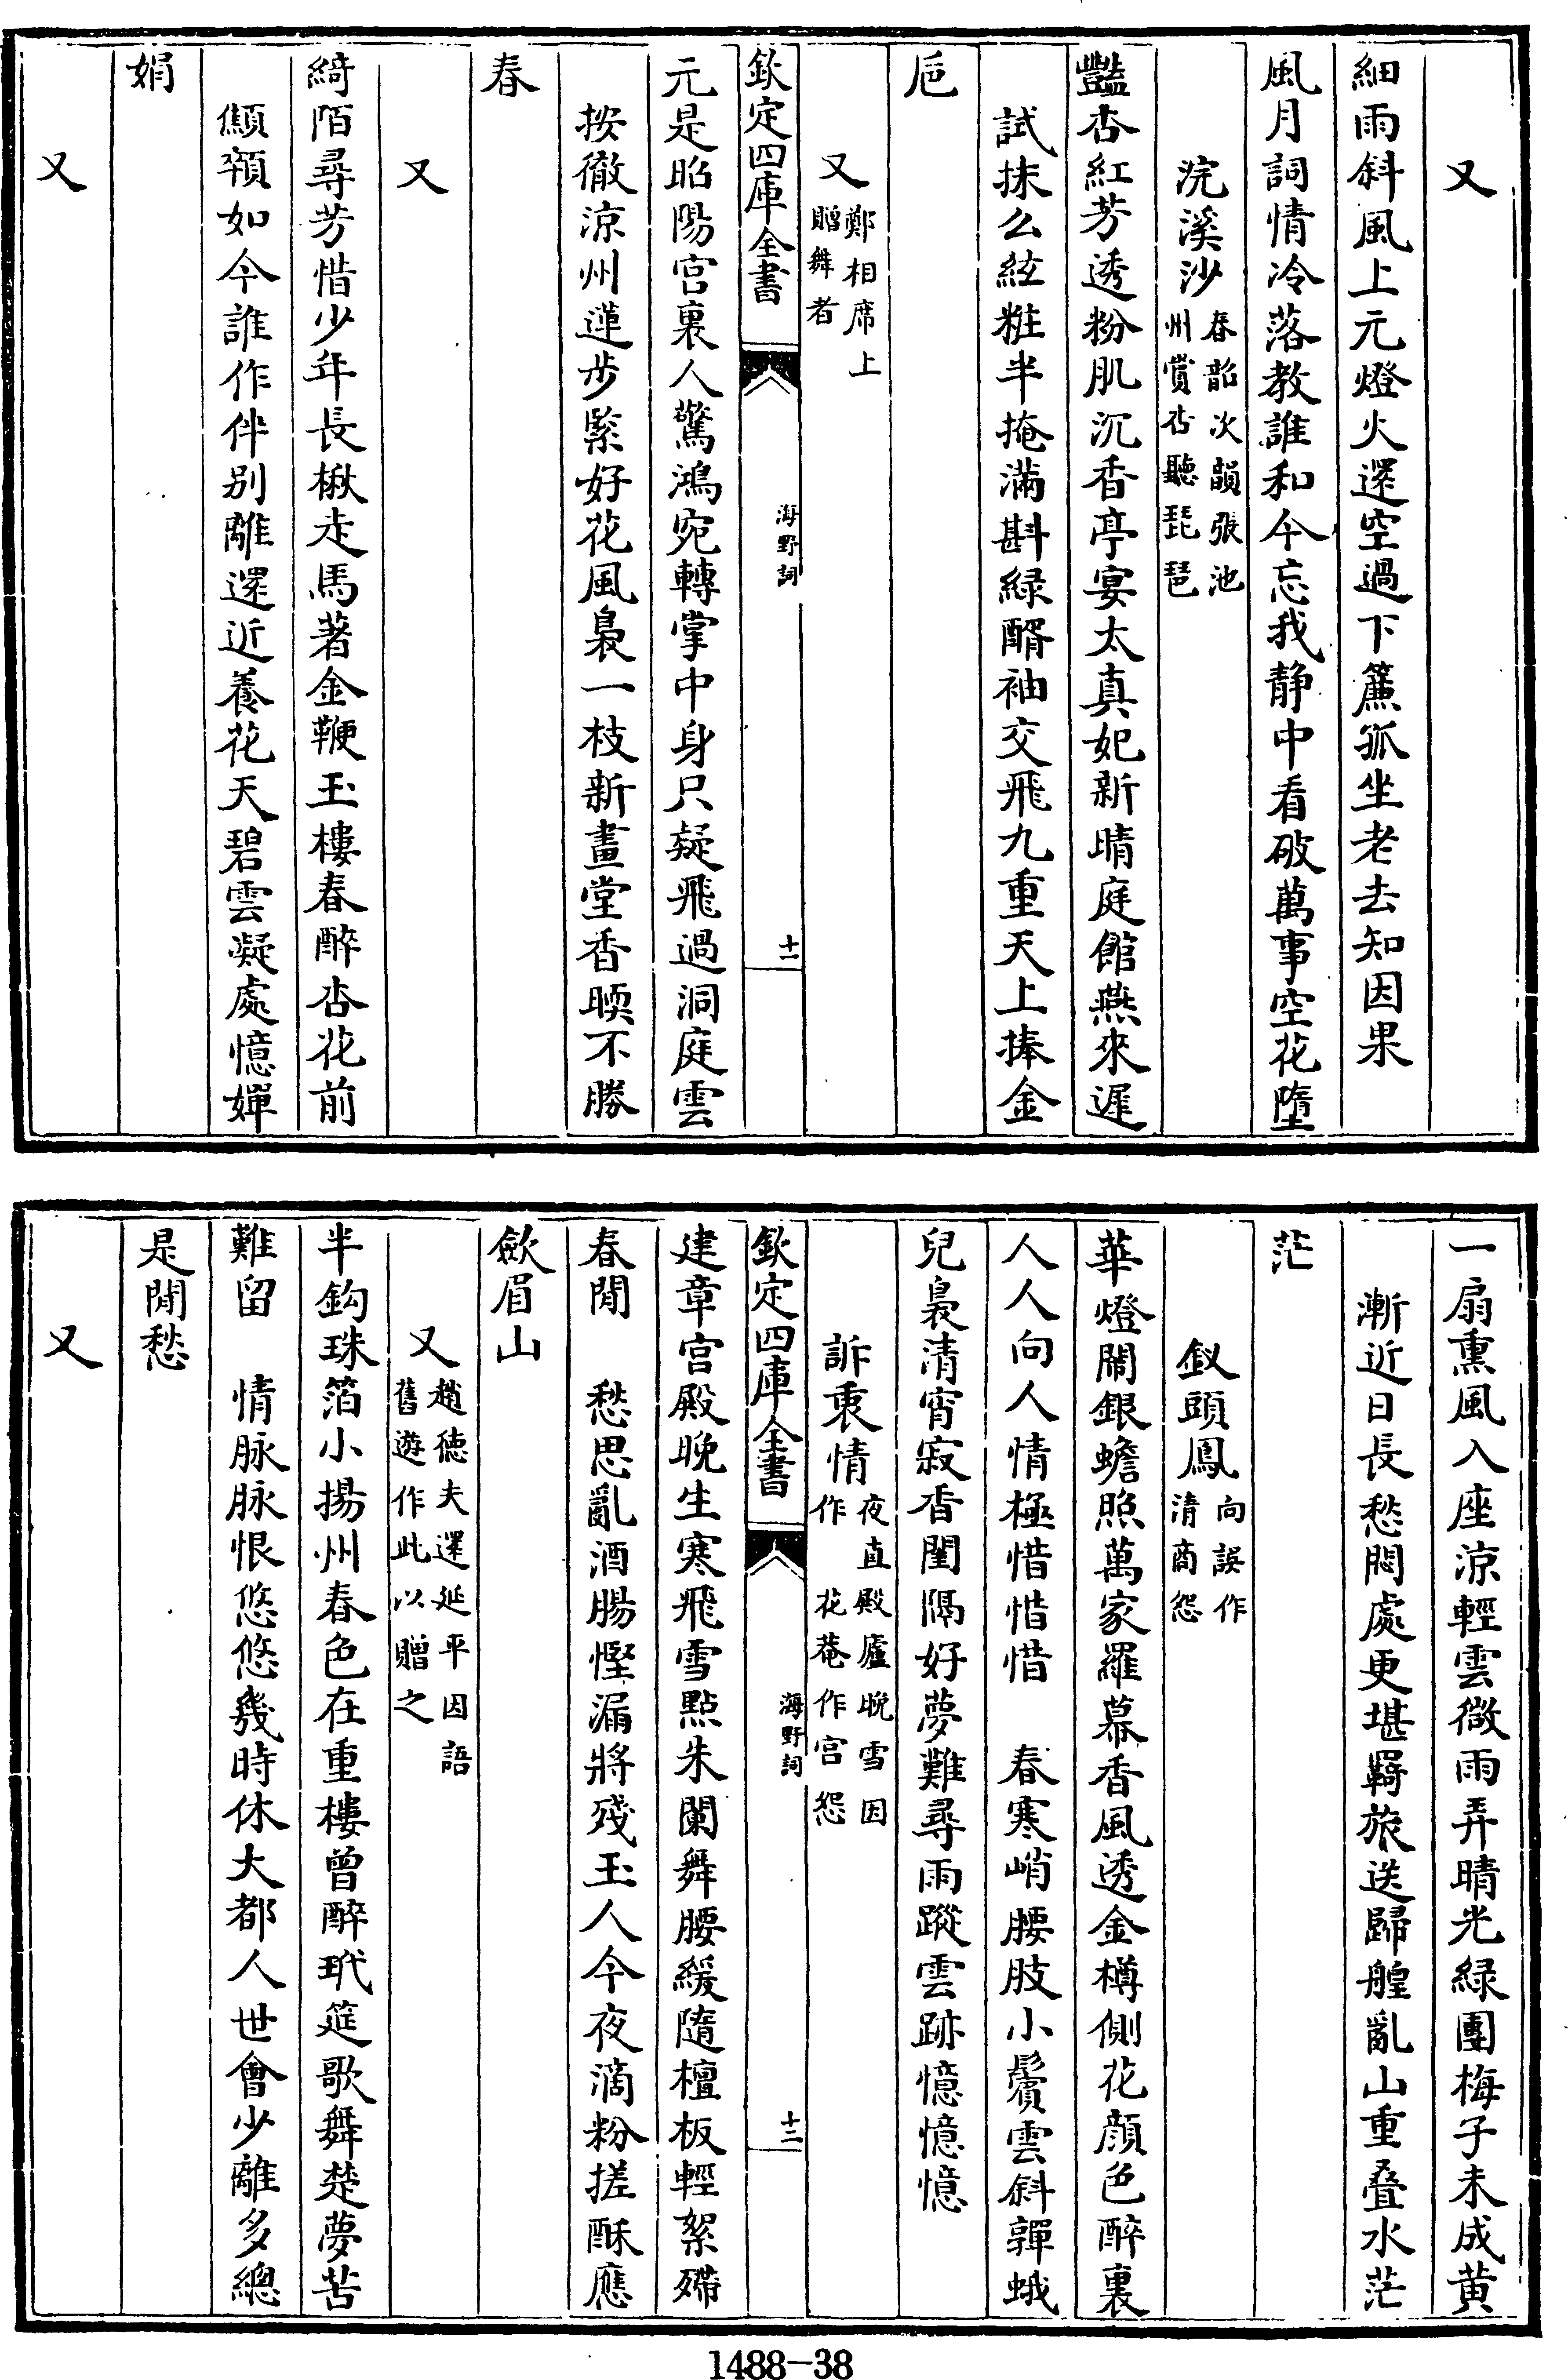 又
細雨斜風上元燈火還空過下簾孤坐老去知因果
風月詞情冷落教誰和今忘我静中看破萬事空花墮
浣溪沙春韶次韻張池州賞杏聽琵琶
豔杏紅芳透粉肌沉香亭宴太真妃新晴庭館燕來遲
試抹么絃粧半掩滿斟緑醑袖交飛九重天上捧金
巵
又鄭相席上贈舞者
欽定四庫全書
海野詞
十一
元是昭陽宫裏人驚鴻宛轉掌中身只疑飛過洞庭雲
按徹涼州蓮步緊好花風裊一枝新畫堂香暖不勝
春
又
綺陌尋芳惜少年長楸走馬著金鞭玉樓春醉杏花前
顦顇如今誰作伴别離還近養花天碧雲凝處憶嬋
娟
又
一扇熏風入座涼輕雲微雨弄晴光緑團梅子未成黄
漸近日長愁悶處更堪羇旅送歸艎亂山重叠水茫
茫
釵頭鳳向誤作清商怨
華燈閙銀蟾照萬家羅幕香風透金樽側花顔色醉裏
人人向人情極惜惜惜　春寒峭腰肢小鬢雲斜嚲蛾
兒裊清宵寂香閨隔好夢難尋雨蹤雲跡憶憶憶
訴衷情夜直殿廬晚雪因作　花菴作宫怨
欽定四庫全書
海野詞
十二
建章宫殿晚生寒飛雪點朱闌舞腰緩隨檀板輕絮殢
春閒　愁思亂酒腸慳漏將殘玉人今夜滴粉搓酥應
歛眉山
又趙徳夫還延平因語舊遊作此以贈之
半鈎珠箔小揚州春色在重樓曾醉玳筵歌舞楚夢苦
難留　情脉脉恨悠悠幾時休大都人世會少離多總
是閒愁
又
1488-38